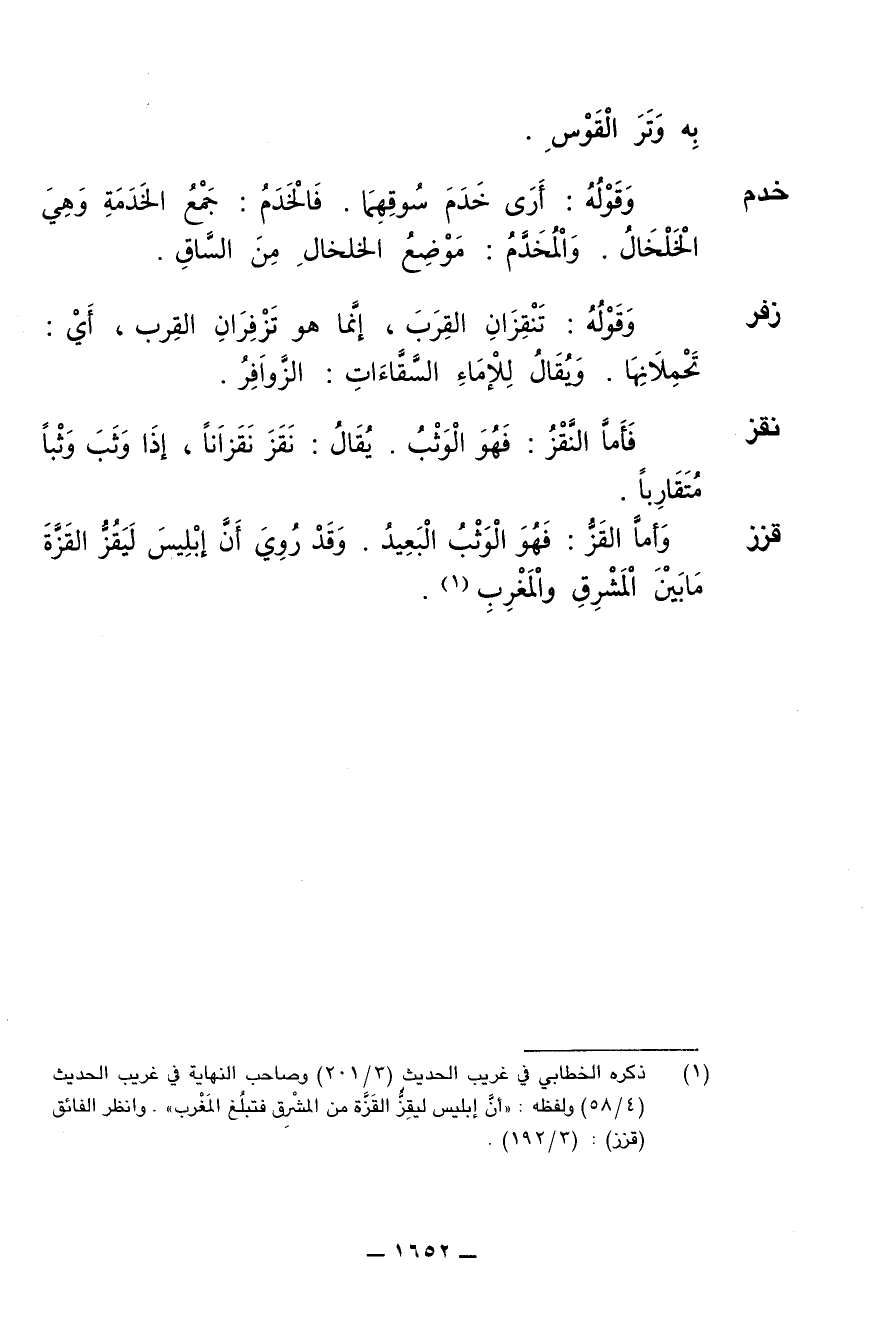 بِه وَتَرَ الْقَوْسِ .
خدم وَقَوْلُهُ : أَرَى خَدَمَ سُوقِهِمَا . فَالْخَدَمُ : جَمْعُ الخَدَمَةِ وَهِيَ
الْخَلْخَالُ . وَالْمُخَدَّمُ : مَوْضِعُ الخلخالِ مِنَ السَّاقِ .
زفر وَقَوْلُهُ : تَنْقِزَانِ القِرَبَ ، إنَّما هو تَزْفِرَانِ القِرب ، أَيْ :
تَحْمِلَانِهَا . وَيُقَالُ لِلْإمَاءِ السَّقَّاءَاتِ : الزَّوَافِرُ .
نقز فَأَمَّا النَّقْزُ : فَهُوَ الْوَثْبُ . يُقَالُ : نَقَزَ نَقَزَاناً ، إذَا وَثَبَ وَثْباً
مُتَقَارِباً .
قزز وَأمَّا القَزُّ : فَهُوَ الْوَثْبُ الْبَعِيدُ . وَقَدْ رُوِيَ أَنَّ إبْلِيسَ لَيَقُزُّ القَزَّةَ
مَابَيْنَ الْمَشْرِقِ والْمَغْرِبِ (١) .
(١) ذكره الخطابي في غريب الحديث (٢٠١/٣) وصاحب النهاية في غريب الحديث
(٥٨/٤) ولفظه : «أنَّ إبليس ليقِزُّ القَزَّة من المشْرق فتبلُغ المَغْرب» . وانظر الفائق
(قزز) : (١٩٢/٣) .
— ١٦٥٢ —